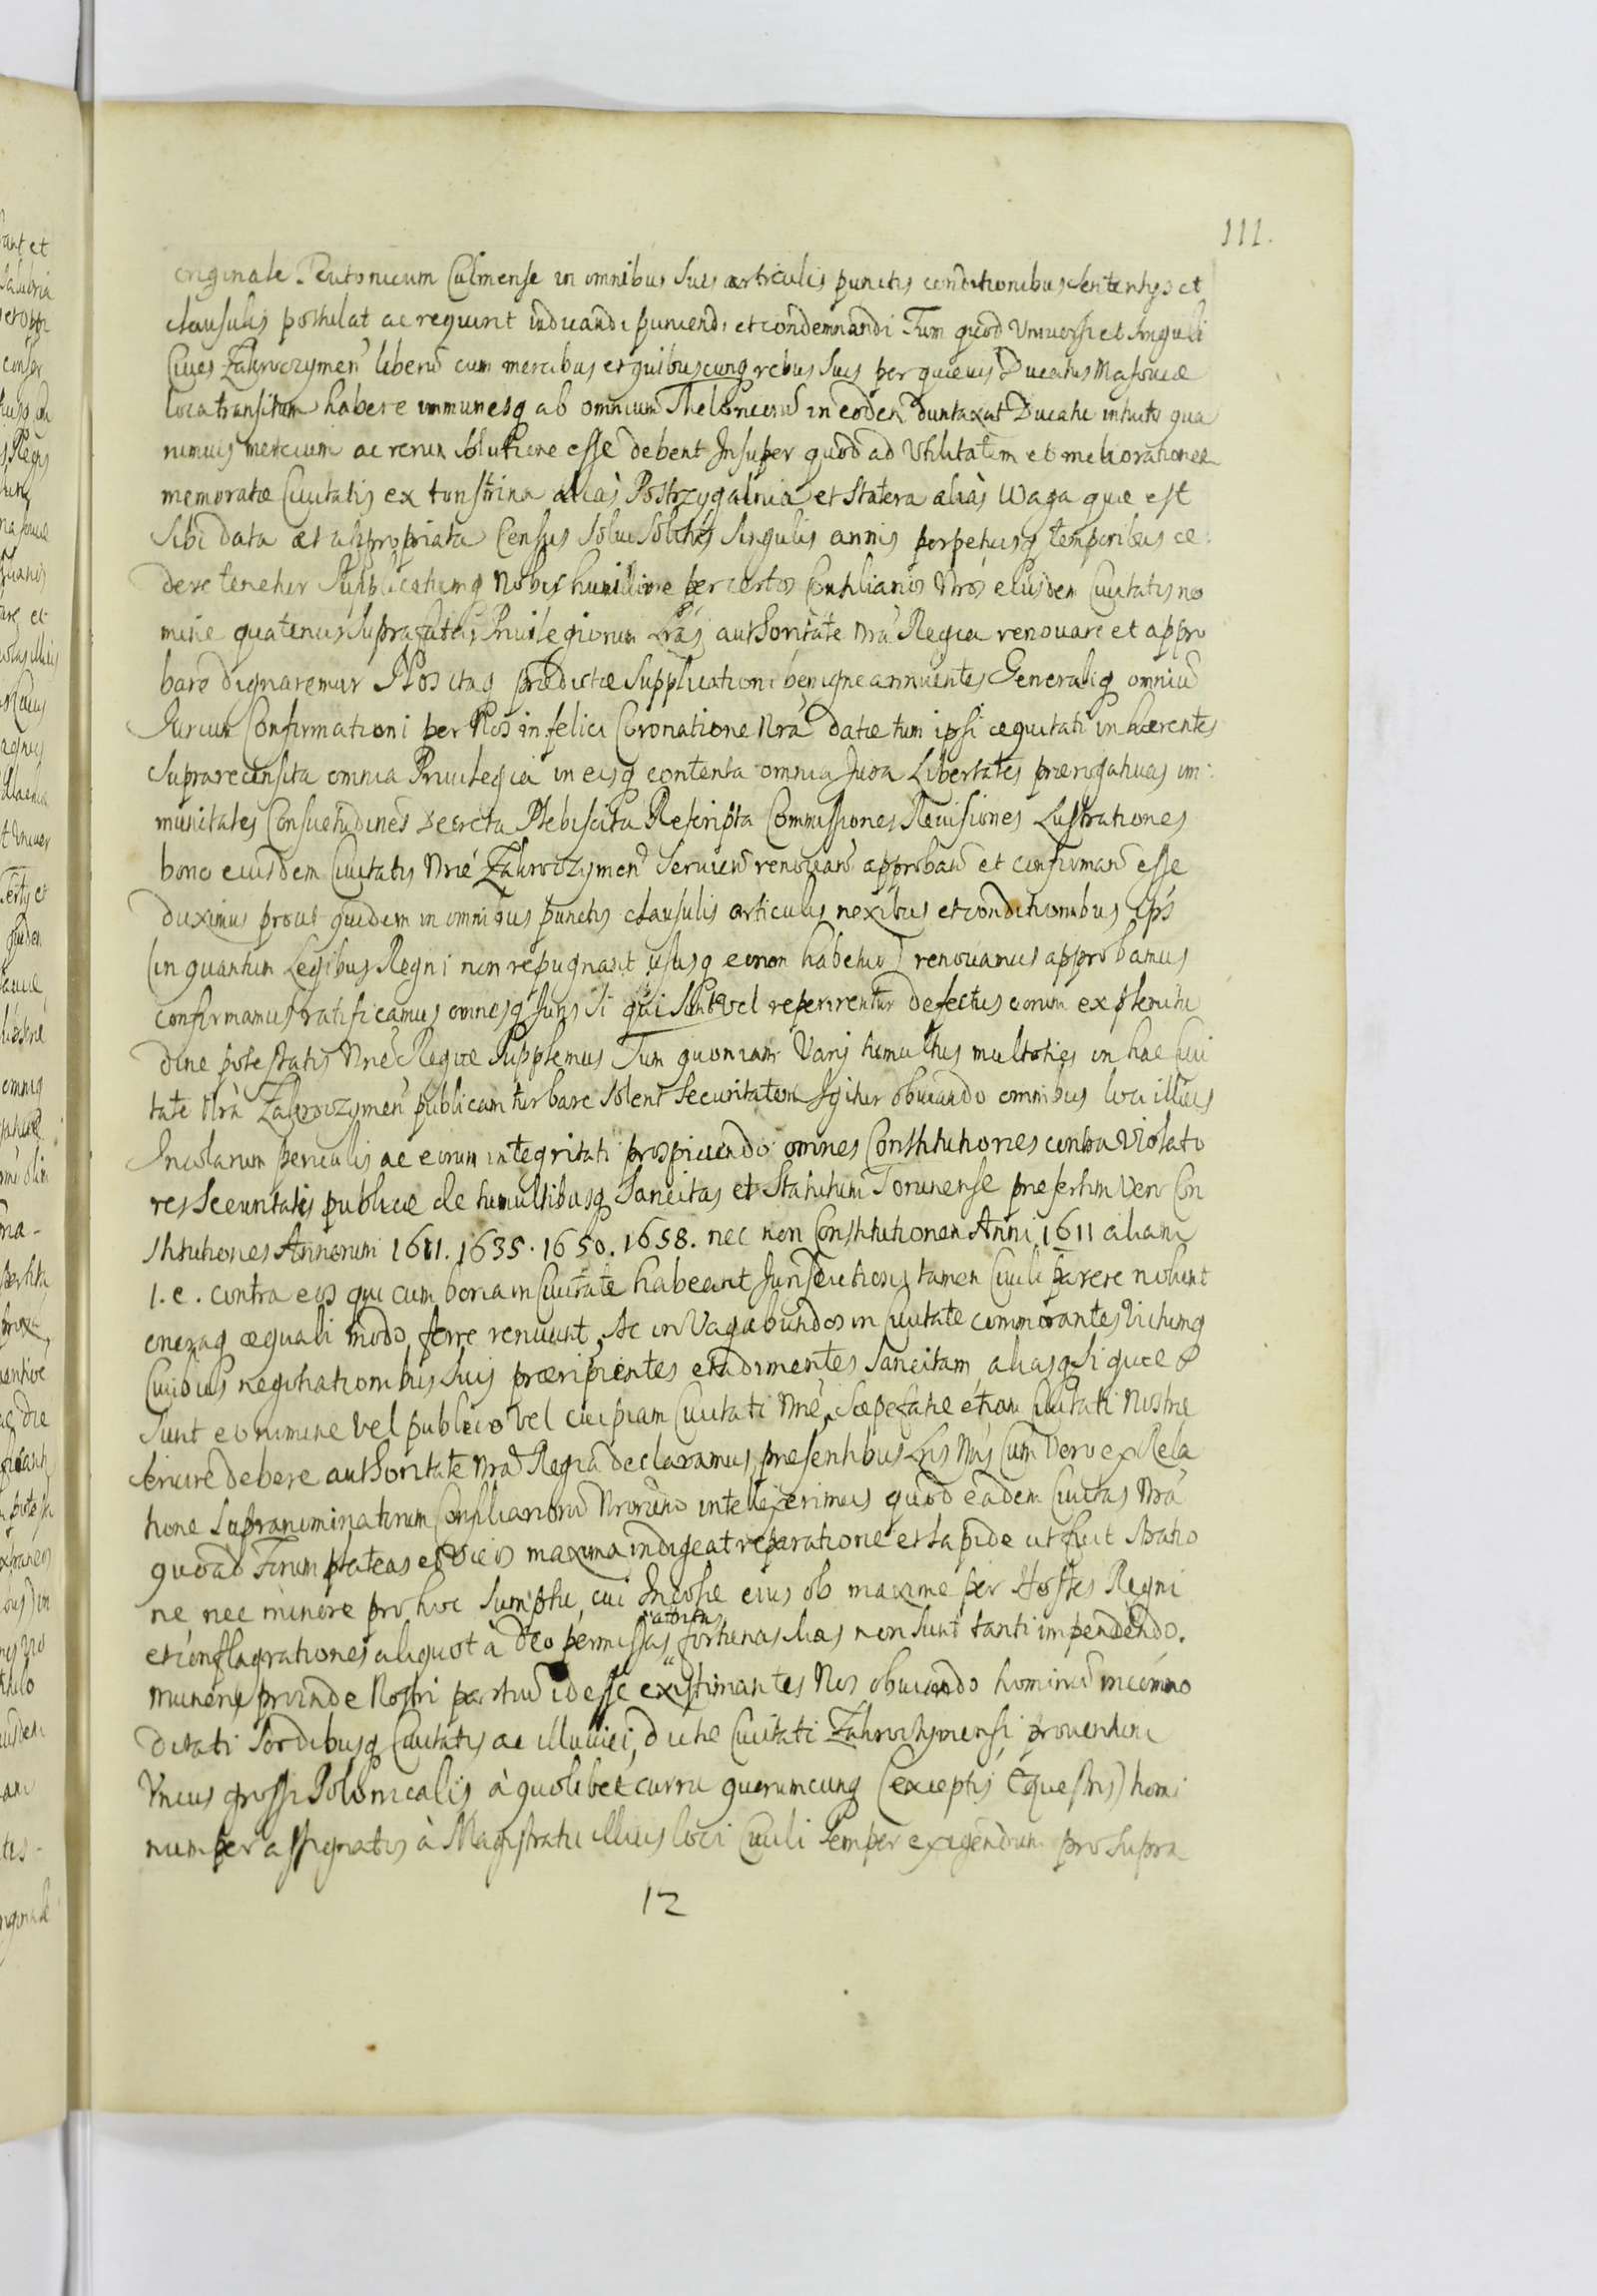 111.
originale Teutonicum Culmense in omnibus suis articulis punctis conditionibus sententys et
clausulis postulat ac requirit iudicandi puniendi et condemnandi Tum quod Universi et singuli
Cives Zakroczymen̄ liberū cum mercibus et quibuscunq rebus suis per quævis Ducatus Masoviæ
loca transitum habere immunesq ab omnium Theloneorū in eodem duntaxat Ducatu intuitu qua
rumvis mercium ac rerum solutione esse debent Insuper quod ad Utilitatem et meliorationem
memoratæ Civitatis ex tonstrina aliàs Postrzygalnia et Statera aliàs Waga quæ est
sibi data et appropriata Census solvi solitus singulis annis perpetuisq temporibus ce-
dere tenetur Supplicatumq Nobis humillime per certos Consiliarios Nros eiusdem Civitatis no
mine quatenus suprafatas Privilegiorum Lras authoritate nra Regia renovare et appro
bare dignaremur Nos itaq prædictæ supplicationi benigne annuentes Generaliq omniū
Iurium Confirmationi per Nos in felici Coronatione Nra datæ tum ipsi æquitati inhærentes
suprarecensita omnia Privilegia in eisq contenta omnia Jura Libertates prærogativas im-
munitates Consuetudines Decreta Plebiscita Rescripta Commissiones Revisiones Lustrationes
bono eiusdem Civitatis Nræ Zakroczymen̄ Servien̄ renovan̄ approban̄ et confirman̄ esse
duximus prout quidem in omnibus punctis clausulis articulis nexibus et conditionibus ips
(in quantum Legibus Regni non repugnant ususq eorum habetur) renovamus approbamus
confirmamus ratificamus omnesq Juris si qui sunt vel reperirentur defectus eorum ex plenitu
dine potestatis Nræ Regiæ supplemus Tum quoniam Varij tumultus multoties in hac Civi
tate Nra Zakroczymen̄ publicam turbare solent securitatem Igitur obviando omnibus loci illius
Incolarum periculis ac eorum integritati prospiciendo omnes Constitutiones contra Violato
res securitatis publicæ de tumultibusq sancitas et Statutum Torunense presertim vero Con
stitutiones Annorum 1611. 1635. 1650. 1658. nec non Constitutionem Anni 1611 aliam
1. e. contra eos qui cum bona in Civitate habeant Jurisdictioni tamen Civili parere nolunt
oneraq æquali modo ferre renuunt, Ac in Vagabundos in Civitate commorantes Victumq
Civibus negotiationibus suis præripientes et adimentes sancitam aliasq si quæ
sunt eo nomine vel publico vel cuipiam Civitati Nræ, Sæpefatæ etiam Civitati Nostræ
servire debere authoritate Nra Regia declaramus, presentibus Lris Nris Cum vero ex Rela
tione supranominatorum Consiliariorū Nrorum intellexerimus quod eadem Civitas Nra
quoad Forum plateas et Vicos maxima indigeat reparatione et lapide ut fuit stratio
ne, nec minore pro hoc sumptu, cui Incolæ eius ob maxime per Hostes Regni
et conflagrationes aliquot à Deo permissas fortunas suas non sunt tanti impendendo.
muneris proinde Nostri partiū id esse existimantes Nos obviando hominū incommo
ditati sordibusq Civitatis ac illuviei, dictæ Civitati Zakroczymensi proventum
Unius grossi Polonicalis à quolibet curru quorumcunq (exceptis Equestris) homi
num per assignatos à Magistratu illius loci Civili semper exigendum pro supra
12